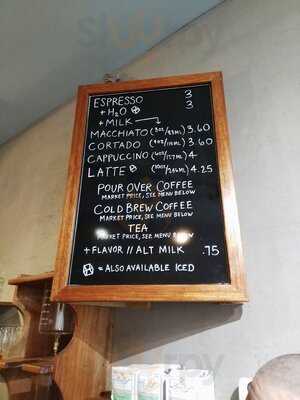 ESPRESSO 3
+ H₂O 3
+ MILK
MACCHIATO (3oz/89ML) 3.60
CORTADO (4oz/118ML) 3.60
CAPPUCCINO 4
LATTE 4.25
POUR OVER COFFEE
MARKET PRICE, SEE MENU BELOW
COLD BREW COFFEE
MARKET PRICE, SEE MENU BELOW
TEA
MARKET PRICE, SEE MENU BELOW
+ FLAVOR // ALT MILK .75
= ALSO AVAILABLE ICED